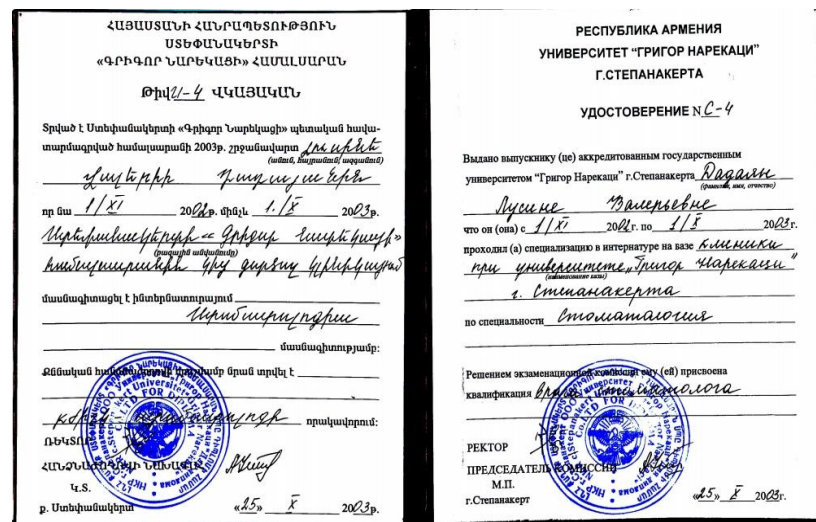 ՀԱՅԱՍՏԱՆԻ ՀԱՆՐԱՊԵՏՈՒԹՅՈՒՆ
ՍՏԵՓԱՆԱԿԵՐՏԻ
«ԳՐԻԳՈՐ ՆԱՐԵԿԱՑԻ» ՀԱՄԱԼՍԱՐԱՆ
Թիվ Ս-4 ՎԿԱՅԱԿԱՆ
Տրված է Ստեփանակերտի «Գրիգոր Նարեկացի» պետական հավա-
տարմագրված համալսարանի 2003թ. շրջանավարտ Լուսինե
(անուն, հայրանուն, ազգանուն)
Վալերիի Դադայանին
որ նա 1/XI 2002թ. մինչև 1./X 2003թ.
Ստեփանակերտի «Գրիգոր Նարեկացի»
(բազային անվանումը)
համալսարանին կից
մասնագիտացել է ինտերնատուրայում
Ստոմատոլոգիա
մասնագիտությամբ:
Քննական որոշմամբ նրան տրվել է
բժիշկ ստոմատոլոգի որակավորում:
ՌԵԿՏՈՐ
ՀԱՆՁՆԱԺՈՂՈՎԻ ՆԱԽԱԳԱՀ
Կ.Տ.
ք. Ստեփանակերտ «25» X 2003թ.
РЕСПУБЛИКА АРМЕНИЯ
УНИВЕРСИТЕТ “ГРИГОР НАРЕКАЦИ”
Г.СТЕПАНАКЕРТА
УДОСТОВЕРЕНИЕ N С-4
Выдано выпускнику (це) аккредитованным государственным
университетом “Григор Нарекаци” г.Степанакерта Дадаян
(фамилия, имя, отчество)
Лусине Валерьевне
что он (она) с 1/XI 2002г. по 1/X 2003г.
проходил (а) специализацию в интернатуре на базе клиники
при университете „Григор Нарекаци”
(наименование базы)
г. Степанакерта
по специальности Стоматология
Решением экзаменационной комиссии ему (ей) присвоена
квалификация врача стоматолога
РЕКТОР
ПРЕДСЕДАТЕЛЬ КОМИССИИ
М.П.
г.Степанакерт «25» X 2003г.